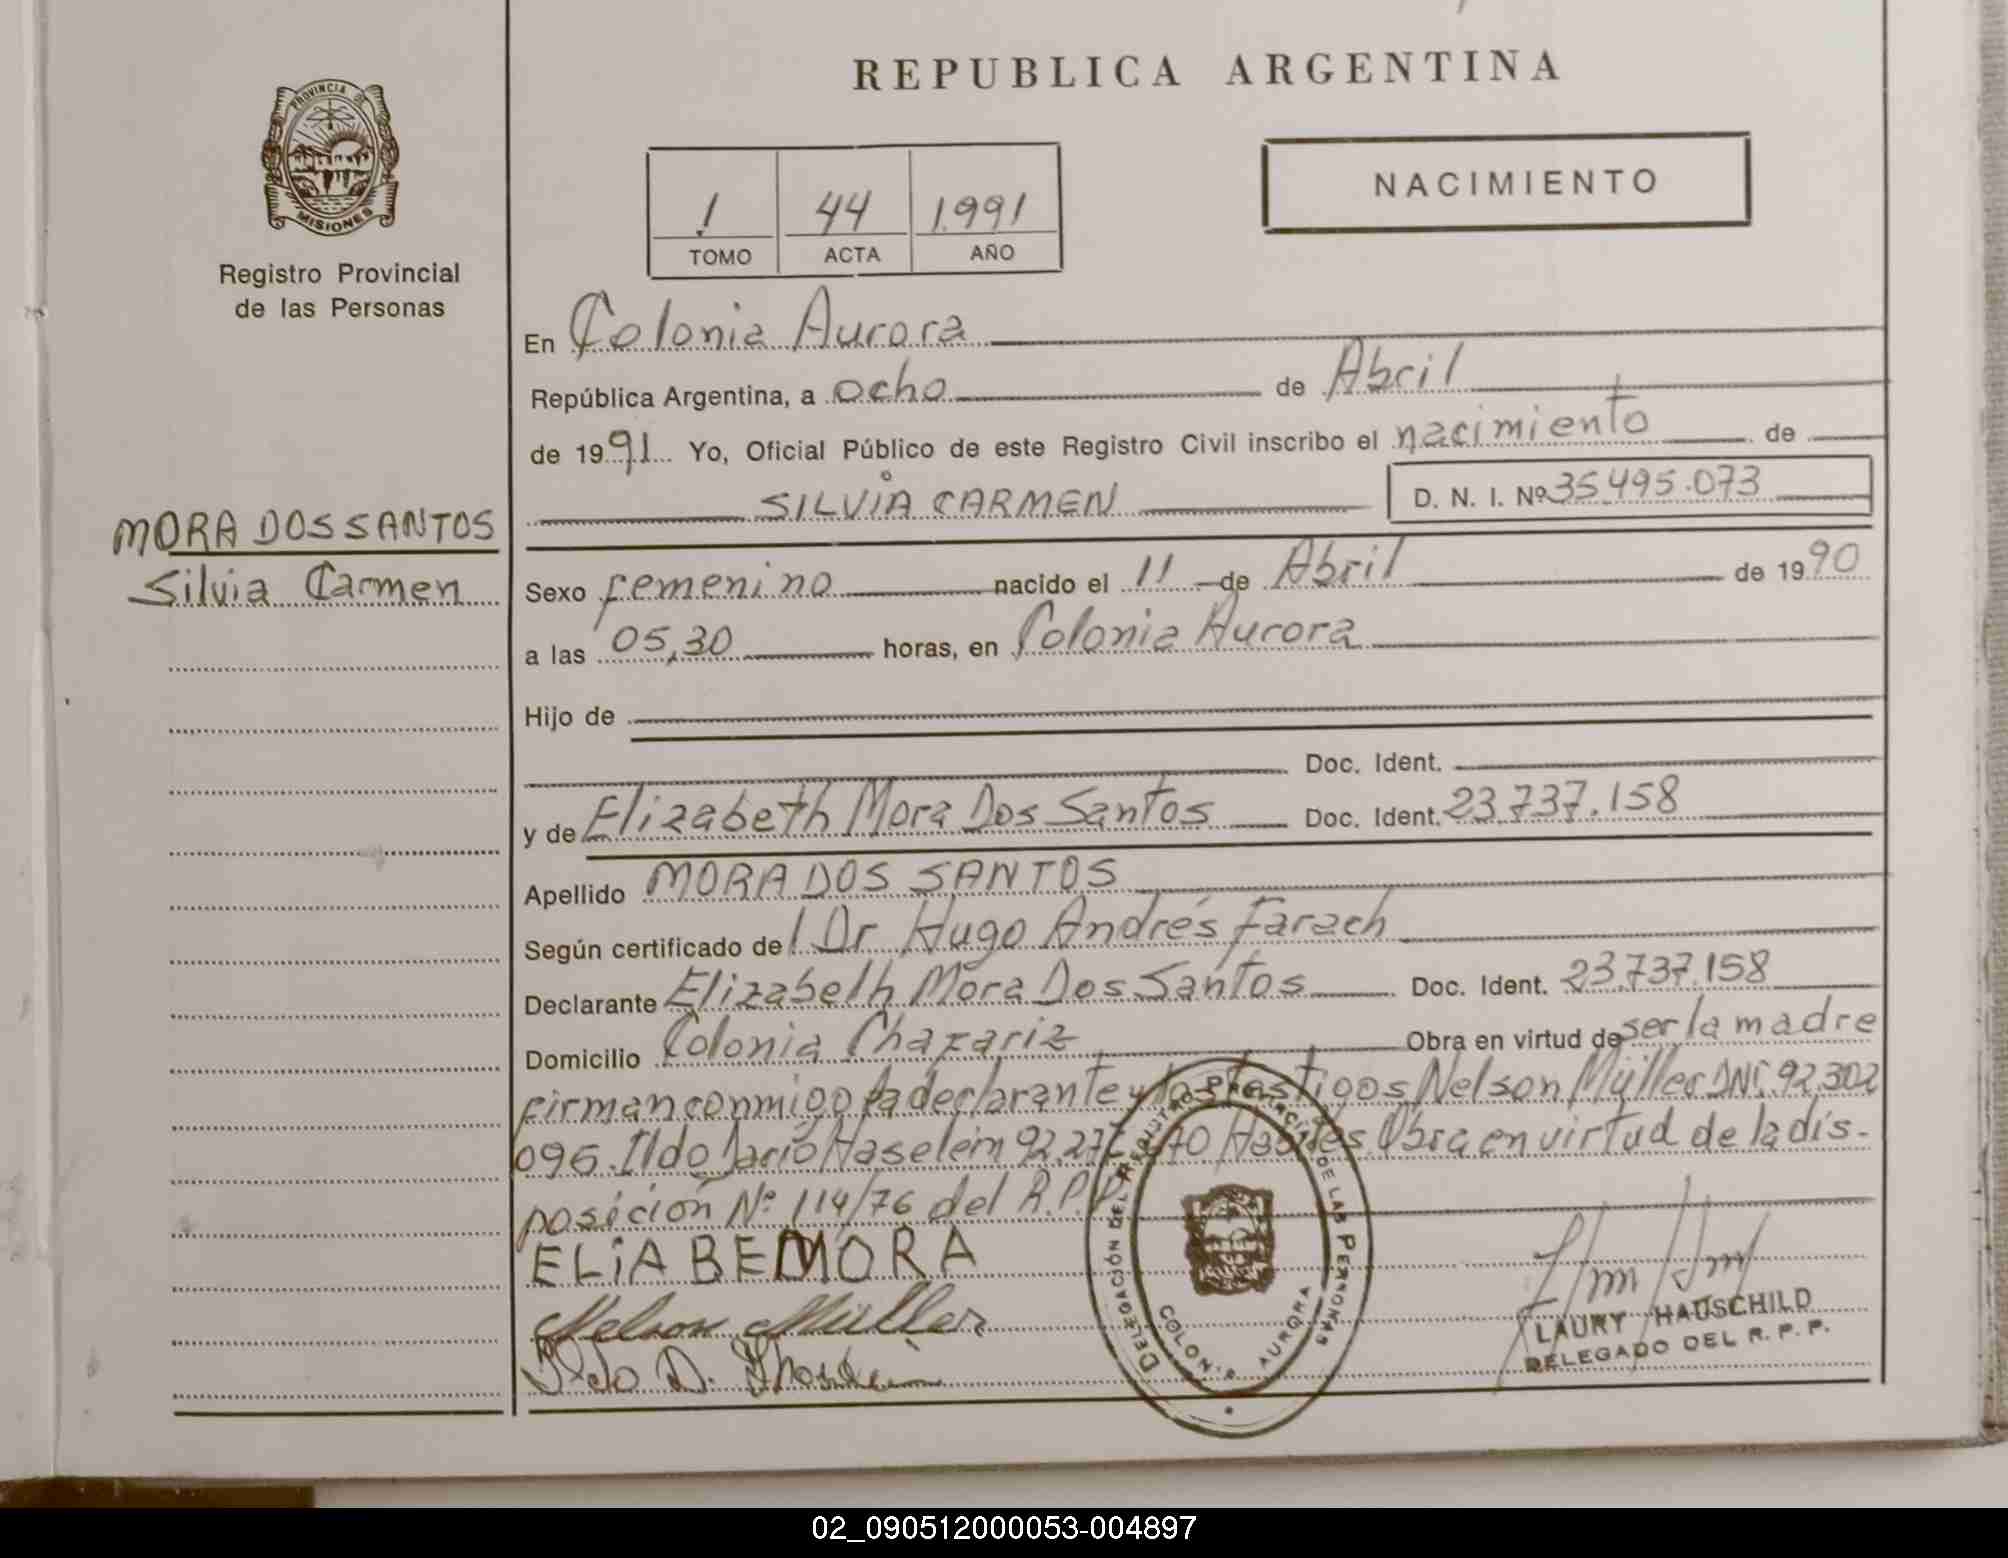 REPUBLICA ARGENTINA
PROVINCIA DE
MISIONES
Registro Provincial
de las Personas
1 44 1.991
TOMO ACTA AÑO
NACIMIENTO
En Colonia Aurora
República Argentina, a ocho de Abril
de 1991 Yo, Oficial Público de este Registro Civil inscribo el nacimiento de
SILVIA CARMEN D. N. I. Nº 35495.073
MORA DOS SANTOS
Silvia Carmen
Sexo femenino nacido el 11 de Abril de 1990
a las 05,30 horas, en Colonia Aurora
Hijo de
Doc. Ident.
y de Elizabeth Mora Dos Santos Doc. Ident. 23.737.158
Apellido MORA DOS SANTOS
Según certificado del Dr Hugo Andrés Farach
Declarante Elizabeth Mora Dos Santos Doc. Ident. 23.737.158
Domicilio Colonia Chafariz Obra en virtud de ser la madre
firman conmigo la declarante y los testigos Nelson Müller DNI. 92.302
096. Ildo Dario Haselein 92.27 Habiles. Obra en virtud de la dis-
posición Nº 114/76 del R.P.P.
ELIA BE MORA
Nelson Müller
Ildo D.
DELEGACIÓN DEL REGISTRO PROVINCIAL DE LAS PERSONAS
COLONIA AURORA
LAURY HAUSCHILD
DELEGADO DEL R. P. P.
02_090512000053-004897